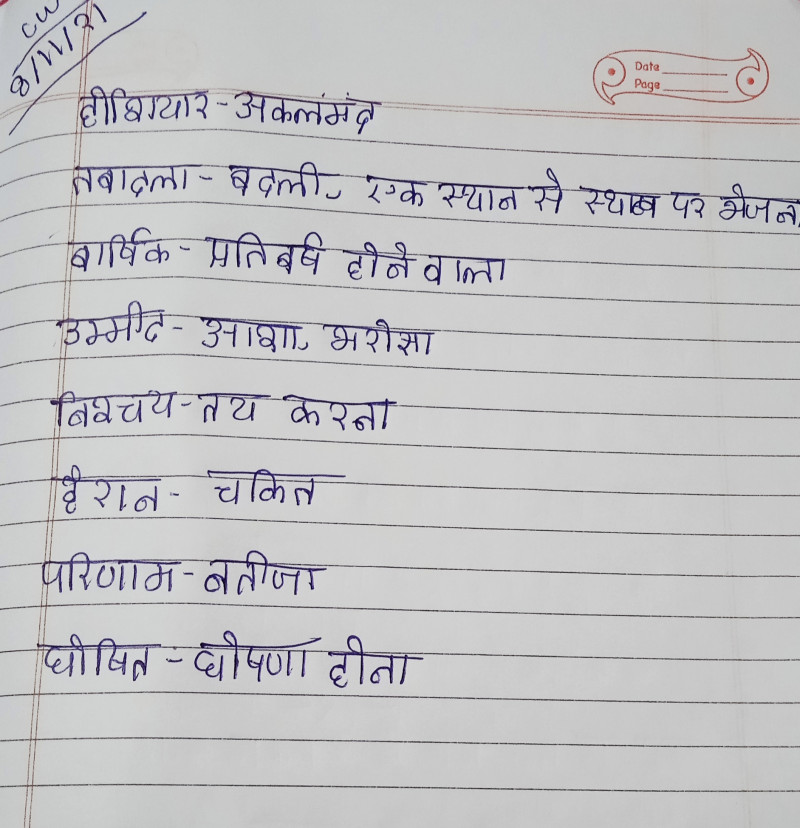 CW
8/11/21
Date
Page
होशियार - अकलंमंद
तबादला - बदली, एक स्थान से स्थान पर भेजना
बार्षिक - प्रतिबर्ष होने वाला
उम्मीद - आशा, भरोसा
निश्चय - तय करना
हैरान - चकित
परिणाम - नतीजा
घोषित - घोषणा होना